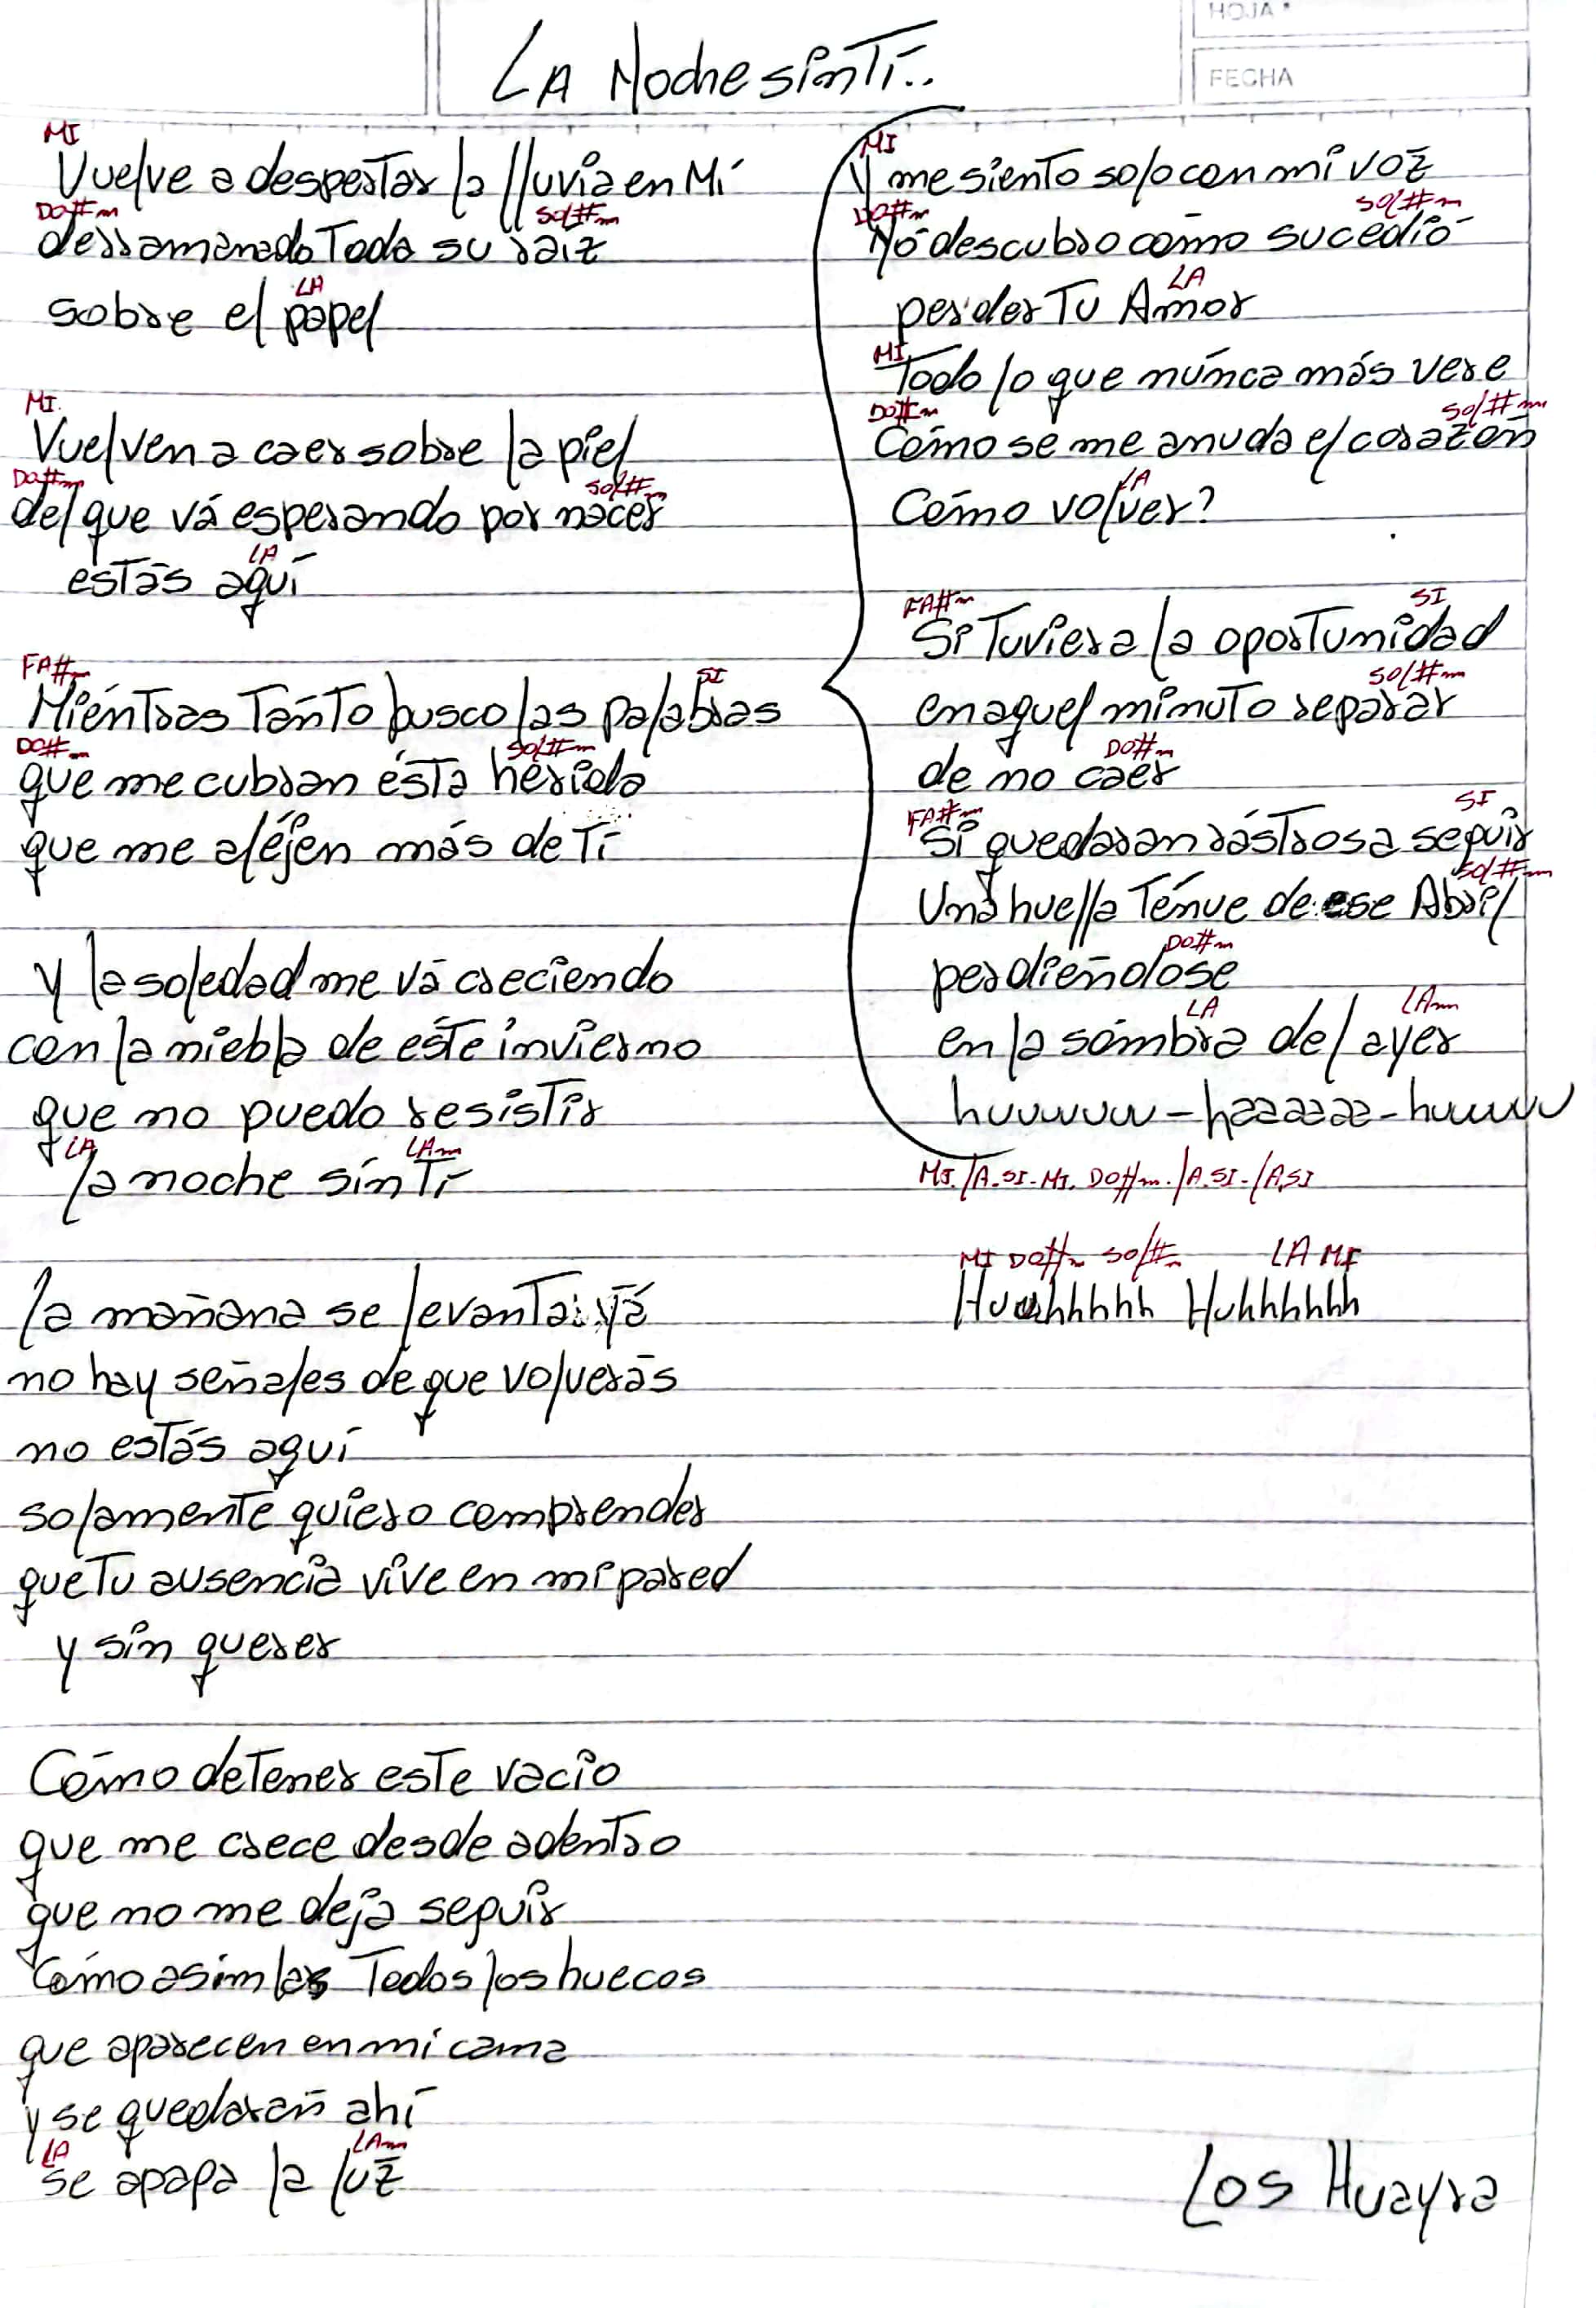 HOJA *
FECHA
LA Noche sin Ti..
MI
Vuelve a despertar la lluvia en Mí
DO#m SOL#m
derramando Toda su raiz
LA
sobre el papel
MI.
Vuelven a caer sobre la piel
DO#m SOL#m
del que vá esperando por nacer
LA
estás aquí
FA#m SI
Mientras Tanto busco las palabras
DO#m SOL#m
que me cubran ésta herida
que me aléjen más de Ti
y la soledad me vá creciendo
con la niebla de este invierno
que no puedo resistir
LA LAm
la noche sin Ti
la mañana se levanta yá
no hay señales de que volverás
no estás aquí
solamente quiero comprender
que Tu ausencia vive en mi pared
y sin querer
Cómo detener este vacio
que me crece desde adentro
que no me deja seguir
Cómo asimlas Todos los huecos
que aparecen en mi cama
y se quedarán ahí
LA LAm
se apaga la luz
MI
Y me siento solo con mi voz
DO#m SOL#m
No descubro cómo sucedió
LA
perder Tu Amor
MI
Todo lo que núnca más vere
DO#m SOL#m
Cómo se me anuda el corazón
LA
Cómo volver?
FA#m SI
Si Tuviera la oportunidad
SOL#m
en aquel minuto reparar
DO#m
de no caer
FA#m SI
Si quedaran rástros a seguir
SOL#m
Una huella Ténue de ese Abril
DO#m
perdiendose
LA LAm
en la sómbra del ayer
huuuuuuu - haaaaaa - huuuuu
MI. LA. SI - MI. DO#m. LA. SI - LA SI
MI DO#m SOL#m LA MI
Huuuhhhhh Huhhhhhh
Los Huayra